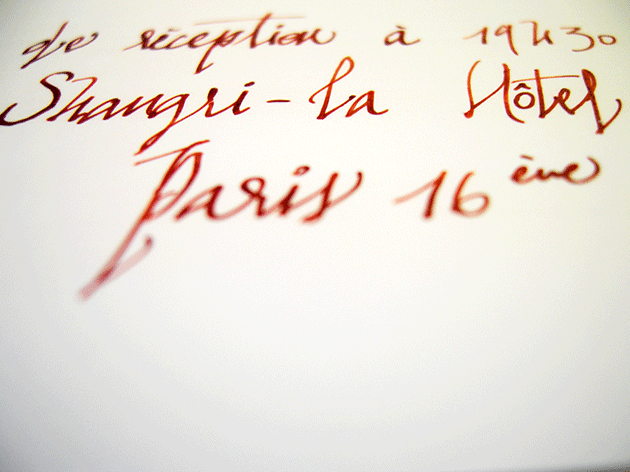 de réception à 19H30
Shangri-La Hôtel
Paris 16 ème